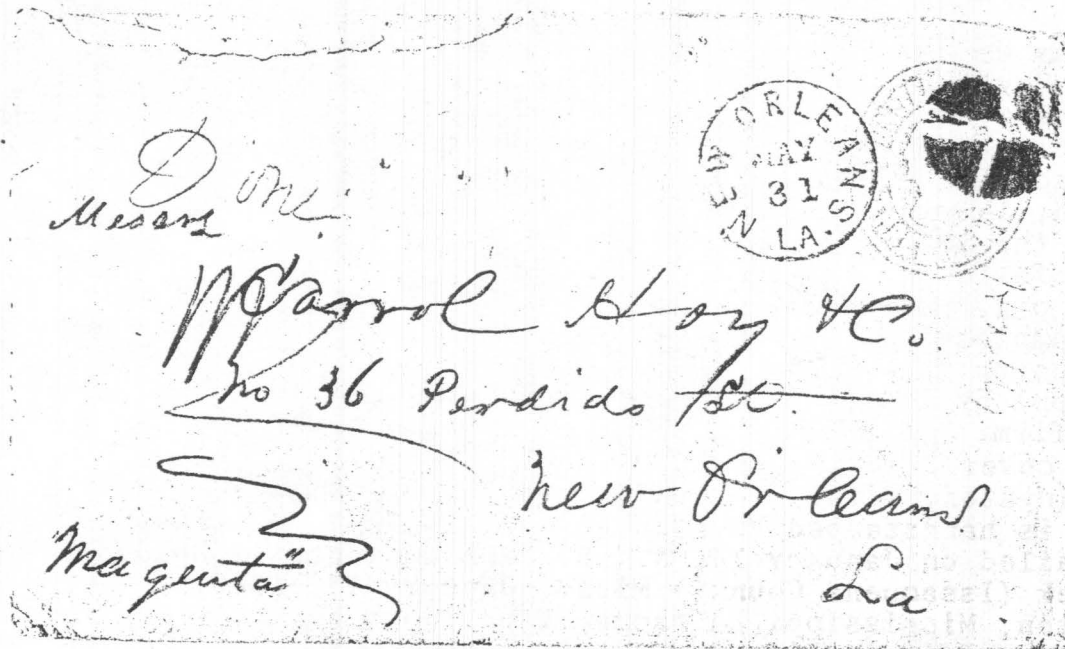 NEW ORLEANS LA.
MAY
31
Done.
Messrs
Carrol Hoy & Co.
No 36 Perdido St.
New Orleans
La
"Magenta"